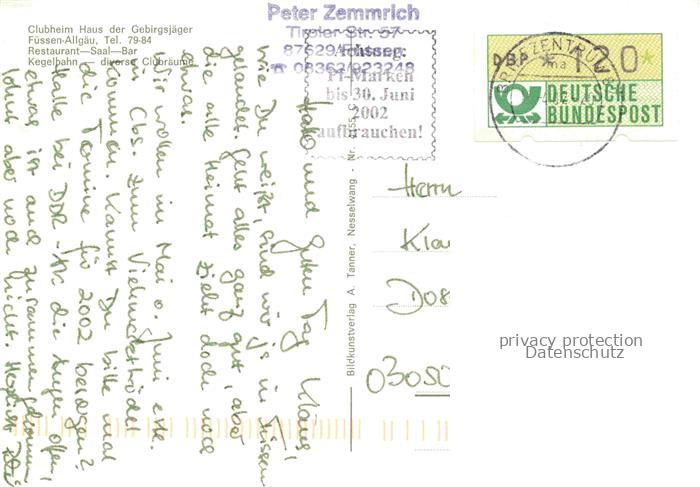 Clubheim Haus der Gebirgsjäger
Füssen-Allgäu, Tel. 79-84
Restaurant—Saal—Bar
Kegelbahn — diverse Clubräume
Peter Zemmrich
Tiroler Str. 57
87629 Füssen
☎ 08363/923248
Achtung:
Pf-Marken
bis 30. Juni
2002
aufbrauchen!
BRIEFZENTRUM
DBP 120
DEUTSCHE
BUNDESPOST
Hallo und guten Tag Klaus!
wie Du weißt, sind wir ja in Füssen
gelandet. Geht alles ganz gut, aber
die alte Heimat zieht doch noch
etwas.
Wir wollen im Mai o. Juni evtl.
in Cbs. zum Viehmarkttrödel
kommen. Kannst Du bitte mal
die Termine für 2002 besorgen?
Halte bei DDR-AK die Augen offen,
etwas ist auch zusammengekommen
lohnt aber noch nicht. Herzlichst
Bildkunstverlag A. Tanner, Nesselwang - Nr.
Herrn
Kla
Dos
0305
privacy protection
Datenschutz